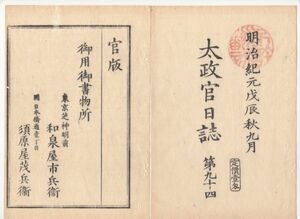 明治紀元戊辰秋九月
太政官日誌 第九十四
定價壹匁
官版
御用御書物所
東京芝神明前
和泉屋市兵衛
同日本橋通壹丁目
須原屋茂兵衛